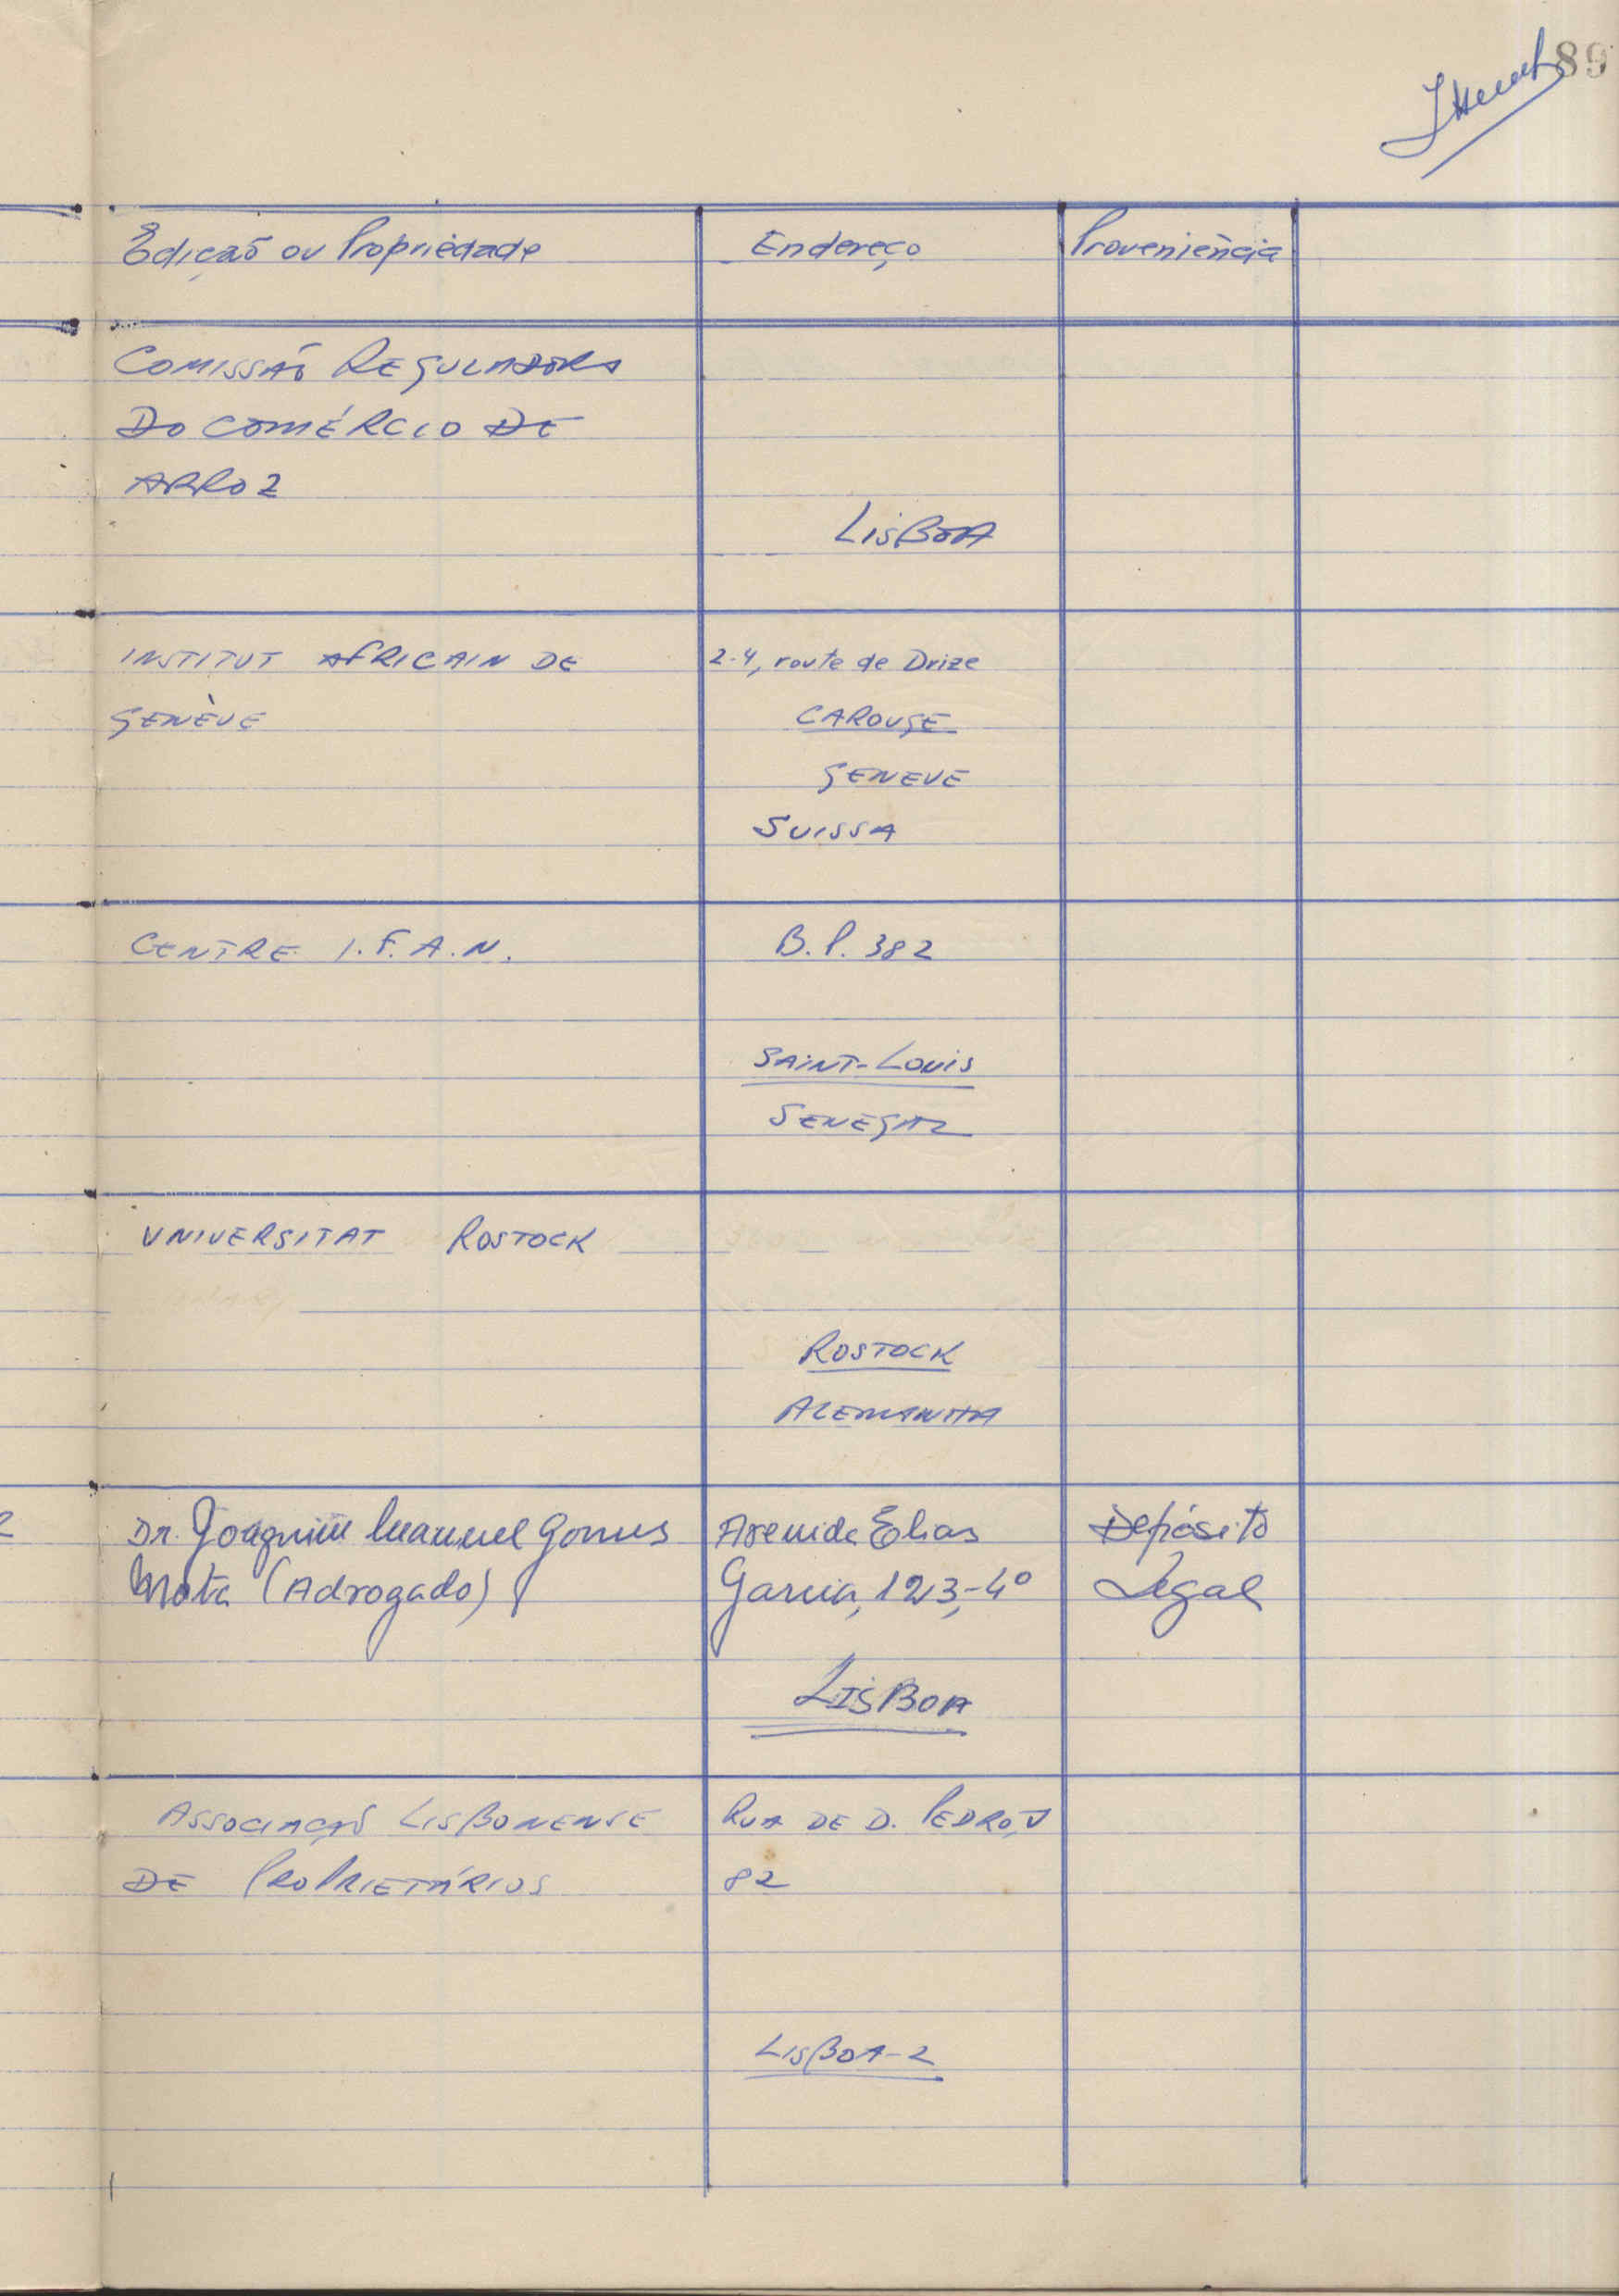 89
Edição ou Propriedade Endereço Proveniência
COMISSÃO REGULADORA
DO COMÉRCIO DE
ARROZ
LISBOA
INSTITUT AFRICAIN DE 2-4, route de Drize
GENÈVE CAROUGE
GENEVE
SUISSA
CENTRE I.F.A.N. B.P. 382
SAINT-LOUIS
SENEGAL
UNIVERSITAT ROSTOCK
ROSTOCK
ALEMANHA
Dr. Joaquim Manuel Gomes Avenida Elias Depósito
Mota (Advogado) Garcia, 123,-4º Legal
LISBOA
ASSOCIAÇÃO LISBONENSE RUA DE D. PEDRO V
DE PROPRIETÁRIOS 82
LISBOA-2